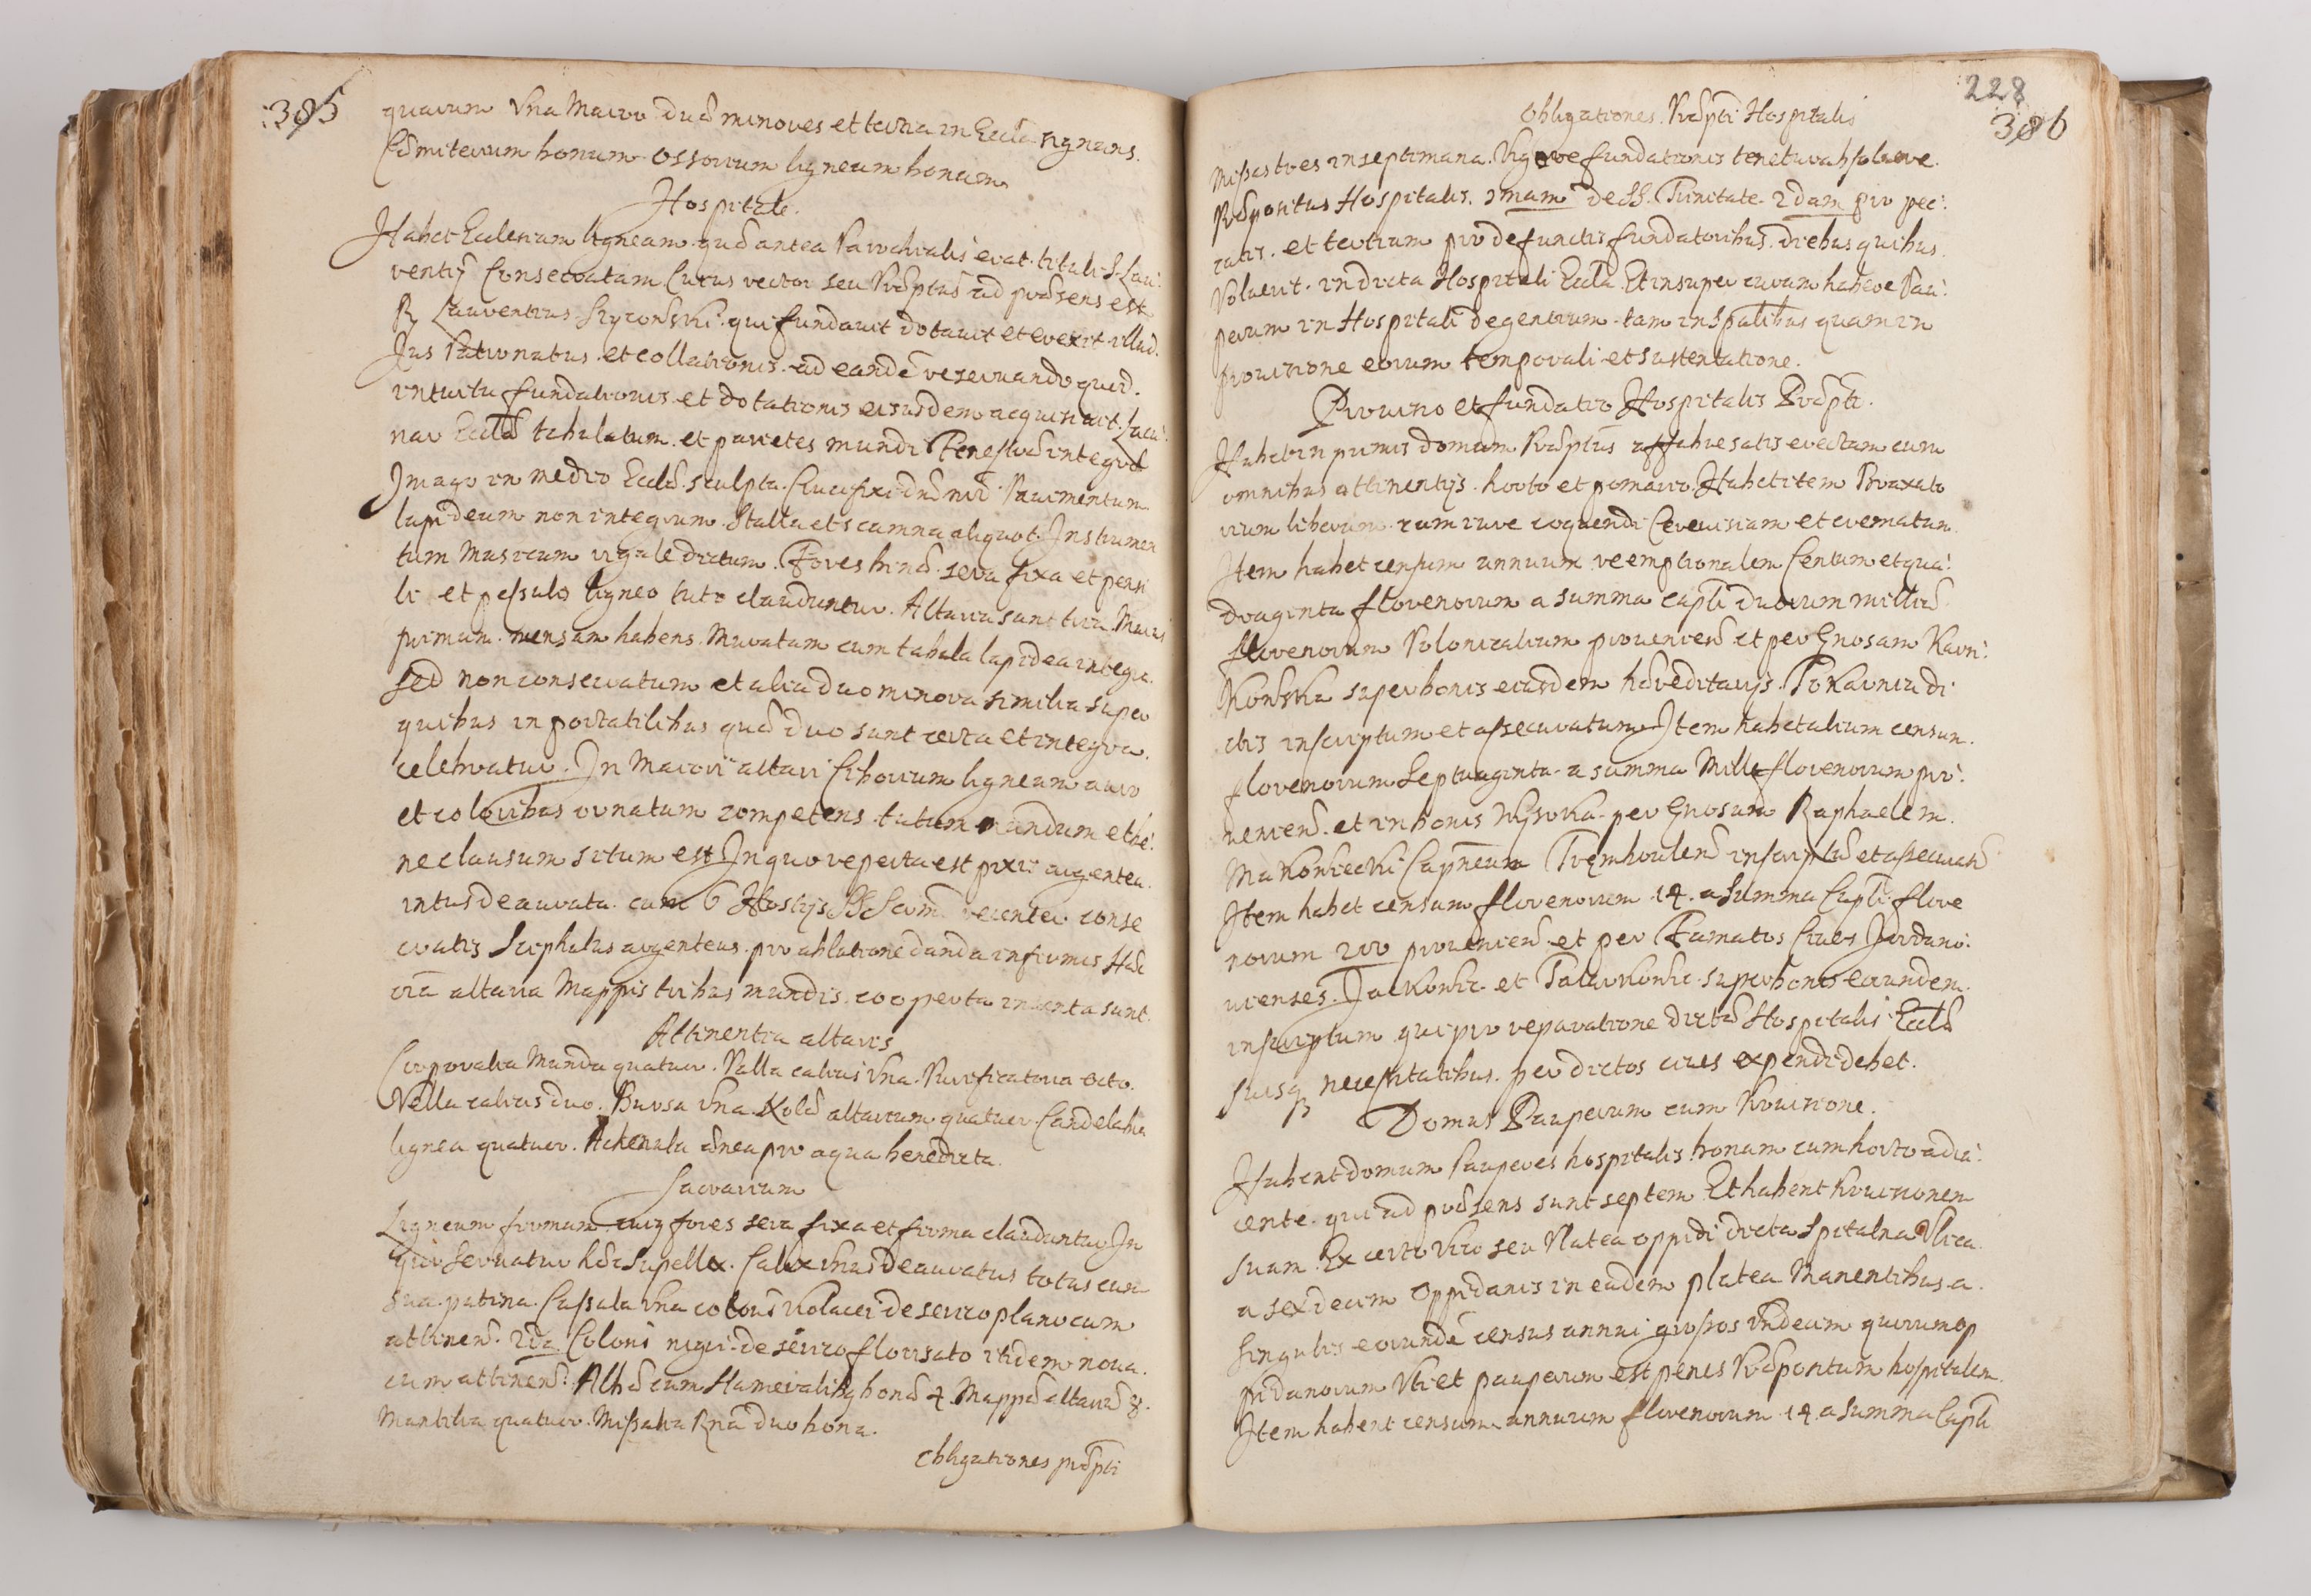 385
quarum Vna Maior duæ minores et tertia in Eccla signans.
Cæmiterium bonum ossorium ligneum bonum
Hospitale.
Habet Ecclesiam ligneam quæ antea Parochialis erat tituli S. Lau:
rentij Consecratam Cuius rector seu Præptus ad præsens est
R Laurentius qui fundauit dotauit et erexit illud.
Jus Patronatus et collationis ad eandē reseruando quod.
intuitu fundationis et dotationis eiusdem acquisiuit. Lacu:
nar Ecclæ tabulatum et parietes mundi Fenestræ integræ
Jmago in medio Ecclæ sculpta Crucifixi dni nri Pauimentum
lapideum non integrum Stalla et scamna aliquot Jnstrumen
tum Musicum rigale dictum. Fores binæ sera fixa et pensi
li et pessulo ligneo tuto clauduntur. Altaria sunt tria Maius
primum mensam habens Muratam cum tabula lapidea integra
sed non consecratum et alia duo minora similia super
quibus in portatilibus quæ duo sunt certa et integra.
celebratur. Jn Maiori altari Ciborium ligneum auro
et coloribus ornatum competens tutum mundum et be:
ne clausum situm est Jn quo reperta est pixis argentea.
intus deaurata cum 6 Hostijs SS Scrm̄ recenter conse
cratis Scyphulus argenteus pro ablutione danda infirmis Hæc
oīa altaria Mappis tribus mundis cooperta inuenta sunt.
Attinentia altaris
Corporalia Munda quatuor. Palla calicis Vna. Purificatoria octo.
Vella calicis duo. Bursa Vna Tolæ altarium quatuor Candelabra
lignea quatuor. Ahenula ænea pro aqua benedicta.
Sacrarium
Ligneum firmum cuiq fores sera fixa et firma clauduntur Jn
quo seruatur hæc supellex. Calix Vnus deauratus totus cum
sua patina. Cassula Vna coloris Violacei de serico plano cum
attinenæ. 2da Coloris nigri de serico florisato itidem noua.
cum attinenæ. Albæ cum Humeralibq bonæ 4. Mappæ altaris 8.
Mantilia quatuor. Missalia Rna duo bona.
Obligationes præpti
228
386
Obligationes Præpti Hospitalis
Missas tres in septimana. Vigore fundationis tenetur absoluere.
Præpositus Hospitalis. 1mam de SS. Trinitate. 2dam pro pec:
catis. et tertiam pro defunctis fundatoribus. diebus quibus
Voluerit. in dicta Hospitali Eccla. Et insuper curam habere Pau:
perum in Hospitali degentium tam in spalibus quam in
prouisione eorum temporali et sustentatione.
Prouisio et fundatio Hospitalis Præpti.
Habet in primis domum Præptus affabre satis erectam cum
omnibus attinentijs. horto et pomario. Habet item Braxato
rium liberum cum iure coquendi Cereuisiam et crematum.
Jtem habet censum annuum reemptionalem Centum et qua:
draginta florenorum a summa capli duorum milliū
florenorum Polonicalium prouenienæ et per Gnosam Karni:
Kowska super bonis eiusdem hæreditarijs. Pokarnia di
ctis inscriptum et assecuratum Jtem habet alium censum.
florenorum Septuaginta a summa Mille florenorum pro:
uenienæ et in bonis Wysoka per Gnosum Raphaelem.
Makowiecki Capneum Trembowlenæ inscriptū et assecuratū
Jtem habet censum florenorum 14. a summa Capli flore
norum 200 prouenienæ et per Famatos Ciues Jordano:
uienses. Jackowic et super bonis eorundem.
inscriptum qui pro reparatione dictæ Hospitalis Ecclæ
suisq necessitatibus. per dictos ciues expendi debet.
Domus Pauperum cum Prouisione.
Habent domum Pauperes hospitalis bonam cum horto adia:
cente. qui ad præsens sunt septem Et habent Prouisionem
suam. Ex certo Vico seu Platea oppidi dicta Spitalna Vlica.
a sexdecim Oppidanis in eadem platea Manentibus a.
singulis eorundē census annui grossos Vndecim quorum op
pidanorum Vti et pauperum est penes Præpositum hospitalem.
Jtem habent censum annuum florenorum 14. a summa Capli